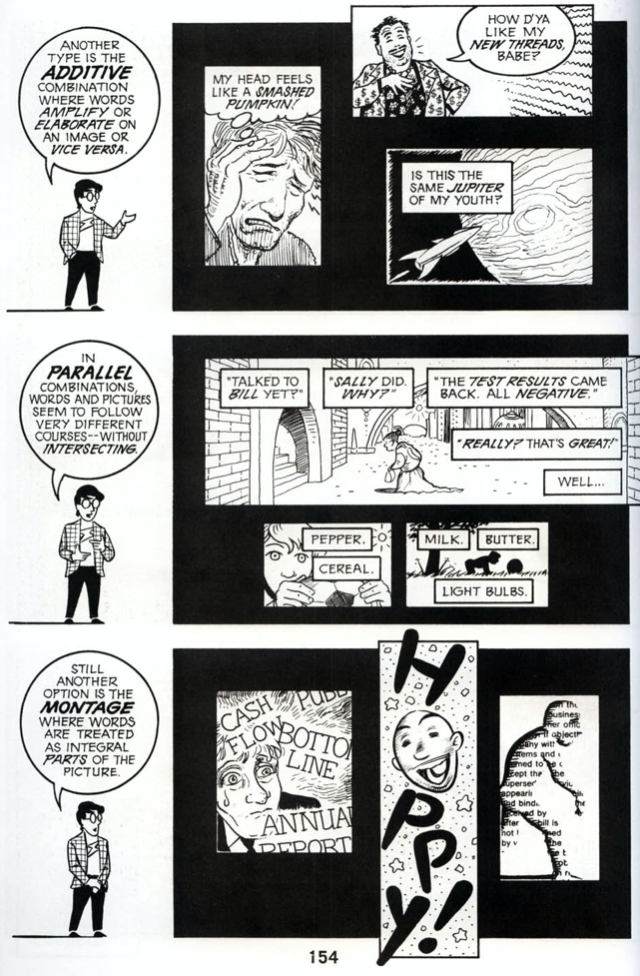 ANOTHER
TYPE IS THE
ADDITIVE
COMBINATION
WHERE WORDS
AMPLIFY OR
ELABORATE ON
AN IMAGE OR
VICE VERSA.
MY HEAD FEELS
LIKE A SMASHED
PUMPKIN!
HOW D'YA
LIKE MY
NEW THREADS,
BABE?
IS THIS THE
SAME JUPITER
OF MY YOUTH?
IN
PARALLEL
COMBINATIONS,
WORDS AND PICTURES
SEEM TO FOLLOW
VERY DIFFERENT
COURSES--WITHOUT
INTERSECTING.
"TALKED TO
BILL YET?"
"SALLY DID.
WHY?"
"THE TEST RESULTS CAME
BACK. ALL NEGATIVE."
"REALLY? THAT'S GREAT!"
WELL...
PEPPER.
CEREAL.
MILK.
BUTTER.
LIGHT BULBS.
STILL
ANOTHER
OPTION IS THE
MONTAGE
WHERE WORDS
ARE TREATED
AS INTEGRAL
PARTS OF THE
PICTURE.
CASH
FLOW
PUBL
BOTTO
LINE
ANNUAL
REPORT
H
PPY!
154